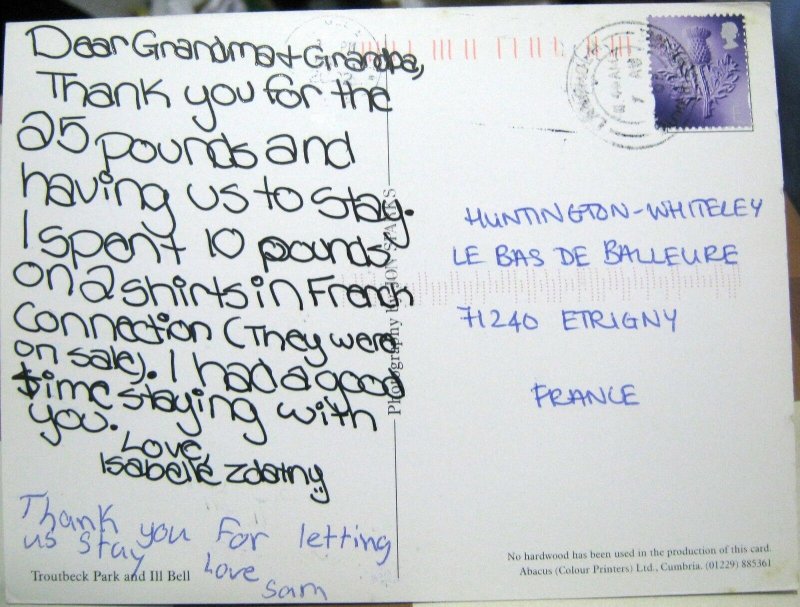 Dear Grandma + Grandpa,
Thank you for the
25 pounds and
having us to stay.
I spent 10 pounds
on 2 shirts in French
Connection (They were
on sale). I had a good
time staying with
you.
Love,
Isabelle Zdatny
Thank you for letting
us stay
Love
Sam
Troutbeck Park and Ill Bell
Photography by JON SPARKS
HUNTINGTON-WHITELEY
LE BAS DE BALLEURE
71240 ETRIGNY
FRANCE
No hardwood has been used in the production of this card.
Abacus (Colour Printers) Ltd., Cumbria. (01229) 885361